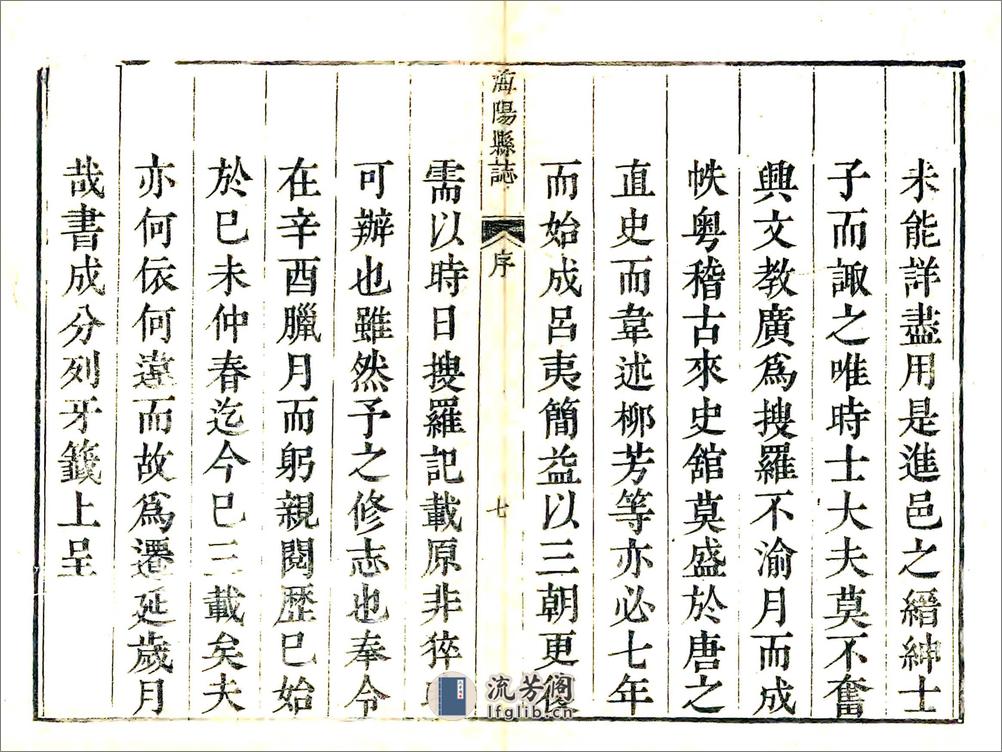 未能詳盡用是進邑之縉紳士
子而諏之唯時士大夫莫不奮
興文教廣爲搜羅不渝月而成
帙粤稽古來史舘莫盛於唐之
直史而韋述柳芳等亦必七年
而始成呂夷簡益以三朝更
海陽縣誌
序
七
需以時日搜羅記載原非猝
可辦也雖然予之修志也奉令
在辛酉臘月而躬親閱歷巳始
於巳未仲春迄今巳三載矣夫
亦何依何違而故爲遷延歲月
哉書成分列牙籤上呈
流芳阁
lfglib.cn